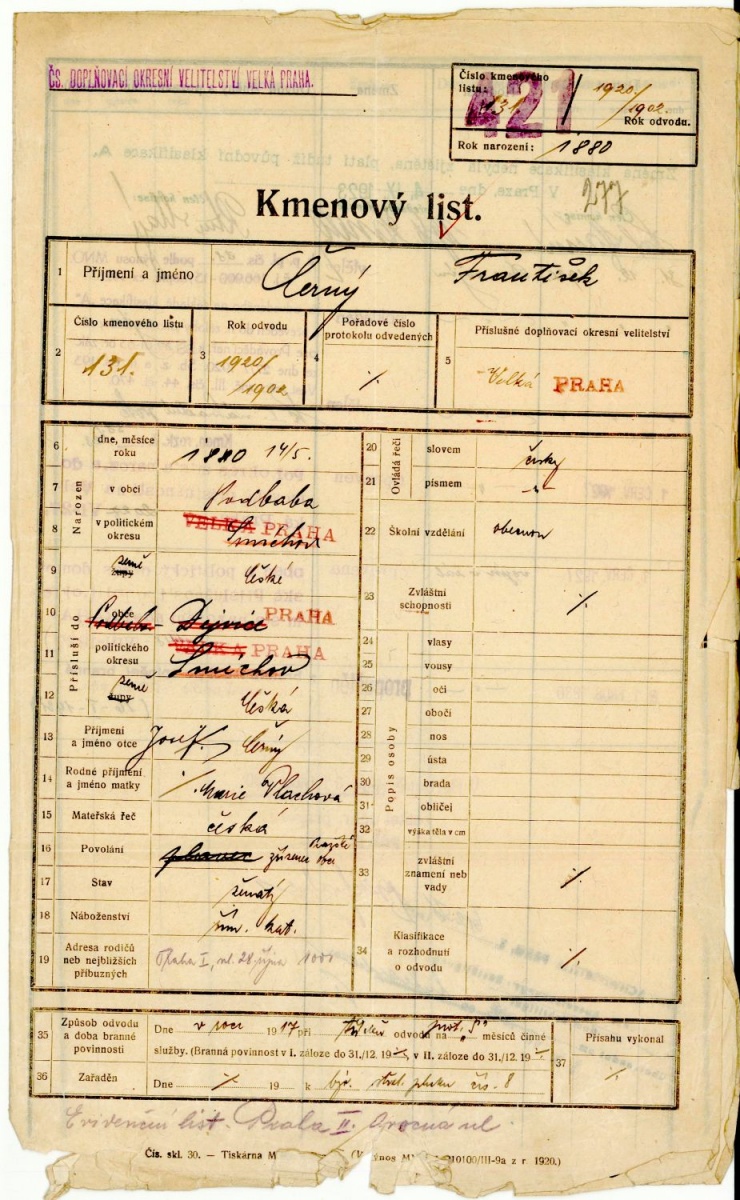 ČS. DOPLŇOVACÍ OKRESNÍ VELITELSTVÍ VELKÁ PRAHA.
Číslo kmenového
listu: 131. 1920/1902
421
Rok odvodu.
Rok narození: 1880
277
Kmenový list.
1 Příjmení a jméno Černý František
2 Číslo kmenového listu 131.
3 Rok odvodu 1920/1902
4 Pořadové číslo protokolu odvedených %
5 Příslušné doplňovací okresní velitelství Velká PRAHA
Narozen
6 dne, měsíce roku 1880 14/5.
7 v obci Podbaba
8 v politickém okresu VELKÁ PRAHA Smíchov
9 země župy České
Přísluší do
10 obce Podbaba - Dejvice PRAHA
11 politického okresu VELKÁ PRAHA Smíchov
12 země župy Česká
13 Příjmení a jméno otce Josef Černý
14 Rodné příjmení a jméno matky %. Marie Vlachová
15 Mateřská řeč česká
16 Povolání zřízenec obce
17 Stav ženatý
18 Náboženství řím. kat.
19 Adresa rodičů neb nejbližších příbuzných Praha I, ul. 28. října
Ovládá řeči
20 slovem česky
21 písmem "
22 Školní vzdělání obecnou
23 Zvláštní schopnosti %
Popis osoby
24 vlasy
25 vousy
26 oči
27 obočí
28 nos
29 ústa
30 brada
31 obličej
32 výška těla v cm
33 zvláštní znamení neb vady %
34 Klasifikace a rozhodnutí o odvodu %
35 Způsob odvodu a doba branné povinnosti
Dne v roce 1917 při odvodu na „ “ měsíců činné
služby. (Branná povinnost v I. záloze do 31./12. 19 %, v II. záloze do 31./12. 19 %
36 Zařaděn Dne % 19 k býv. střel. pluku čís. 8
37 Přísahu vykonal %
Evidenční list. Praha II.
Čís. skl. 30. – Tiskárna M 210100/III-9a z r. 1920.)